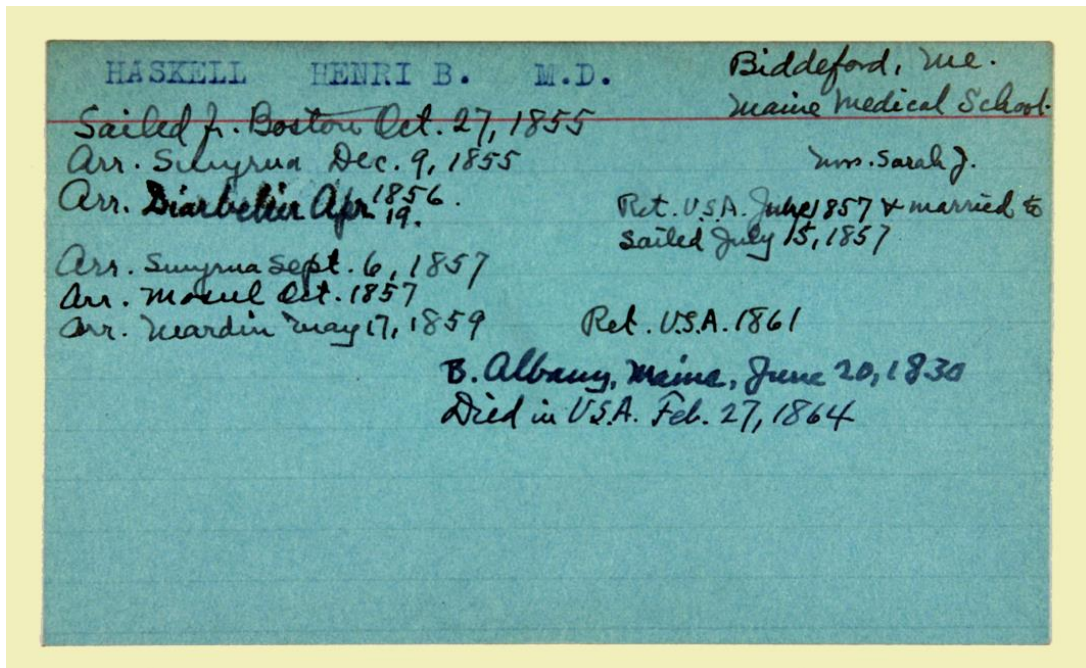 HASKELL HENRI B. M.D.
Biddeford, Me.
Maine Medical School.
Sailed fr. Boston Oct. 27, 1855
Arr. Smyrna Dec. 9, 1855
Mrs. Sarah J.
Arr. Diarbekir Apr. 19. 1856.
Ret. U.S.A. June 1857 & married to
sailed July 15, 1857
Arr. Smyrna Sept. 6, 1857
Arr. Mosul Oct. 1857
Arr. Mardin May 17, 1859
Ret. U.S.A. 1861
B. Albany, Maine, June 20, 1830
Died in U.S.A. Feb. 27, 1864